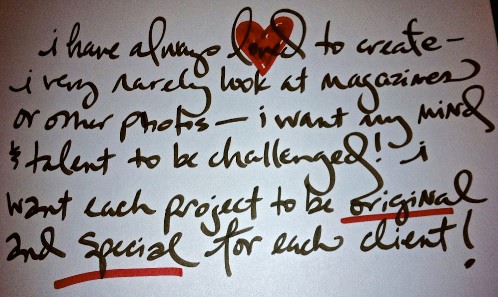 i have always loved to create –
i very rarely look at magazines
or other photos – i want my mind
& talent to be challenged! i
want each project to be original
and special for each client!